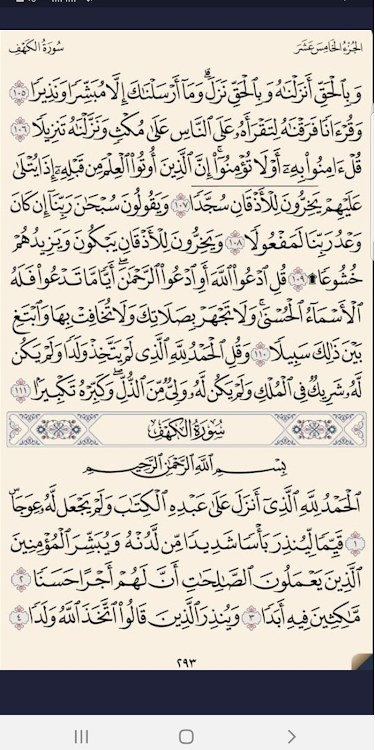 الجزء الخامس عشر
سورة الكهف
وَبِٱلْحَقِّ أَنزَلْنَٰهُ وَبِٱلْحَقِّ نَزَلَ ۗ وَمَآ أَرْسَلْنَٰكَ إِلَّا مُبَشِّرًا وَنَذِيرًا ١٠٥
وَقُرْءَانًا فَرَقْنَٰهُ لِتَقْرَأَهُۥ عَلَى ٱلنَّاسِ عَلَىٰ مُكْثٍ وَنَزَّلْنَٰهُ تَنزِيلًا ١٠٦
قُلْ ءَامِنُوا۟ بِهِۦٓ أَوْ لَا تُؤْمِنُوٓا۟ ۚ إِنَّ ٱلَّذِينَ أُوتُوا۟ ٱلْعِلْمَ مِن قَبْلِهِۦٓ إِذَا يُتْلَىٰ
عَلَيْهِمْ يَخِرُّونَ لِلْأَذْقَانِ سُجَّدًا ١٠٧ وَيَقُولُونَ سُبْحَٰنَ رَبِّنَآ إِن كَانَ
وَعْدُ رَبِّنَا لَمَفْعُولًا ١٠٨ وَيَخِرُّونَ لِلْأَذْقَانِ يَبْكُونَ وَيَزِيدُهُمْ
خُشُوعًا ۩ ١٠٩ قُلِ ٱدْعُوا۟ ٱللَّهَ أَوِ ٱدْعُوا۟ ٱلرَّحْمَٰنَ ۖ أَيًّا مَّا تَدْعُوا۟ فَلَهُ
ٱلْأَسْمَآءُ ٱلْحُسْنَىٰ ۚ وَلَا تَجْهَرْ بِصَلَاتِكَ وَلَا تُخَافِتْ بِهَا وَٱبْتَغِ
بَيْنَ ذَٰلِكَ سَبِيلًا ١١٠ وَقُلِ ٱلْحَمْدُ لِلَّهِ ٱلَّذِى لَمْ يَتَّخِذْ وَلَدًا وَلَمْ يَكُن
لَّهُۥ شَرِيكٌ فِى ٱلْمُلْكِ وَلَمْ يَكُن لَّهُۥ وَلِىٌّ مِّنَ ٱلذُّلِّ ۖ وَكَبِّرْهُ تَكْبِيرًۢا ١١١
سُورَةُ الكَهْفِ
بِسْمِ ٱللَّهِ ٱلرَّحْمَٰنِ ٱلرَّحِيمِ
ٱلْحَمْدُ لِلَّهِ ٱلَّذِىٓ أَنزَلَ عَلَىٰ عَبْدِهِ ٱلْكِتَٰبَ وَلَمْ يَجْعَل لَّهُۥ عِوَجَا ۜ
١ قَيِّمًا لِّيُنذِرَ بَأْسًا شَدِيدًا مِّن لَّدُنْهُ وَيُبَشِّرَ ٱلْمُؤْمِنِينَ
ٱلَّذِينَ يَعْمَلُونَ ٱلصَّٰلِحَٰتِ أَنَّ لَهُمْ أَجْرًا حَسَنًا ٢
مَّٰكِثِينَ فِيهِ أَبَدًا ٣ وَيُنذِرَ ٱلَّذِينَ قَالُوا۟ ٱتَّخَذَ ٱللَّهُ وَلَدًا ٤
٢٩٣